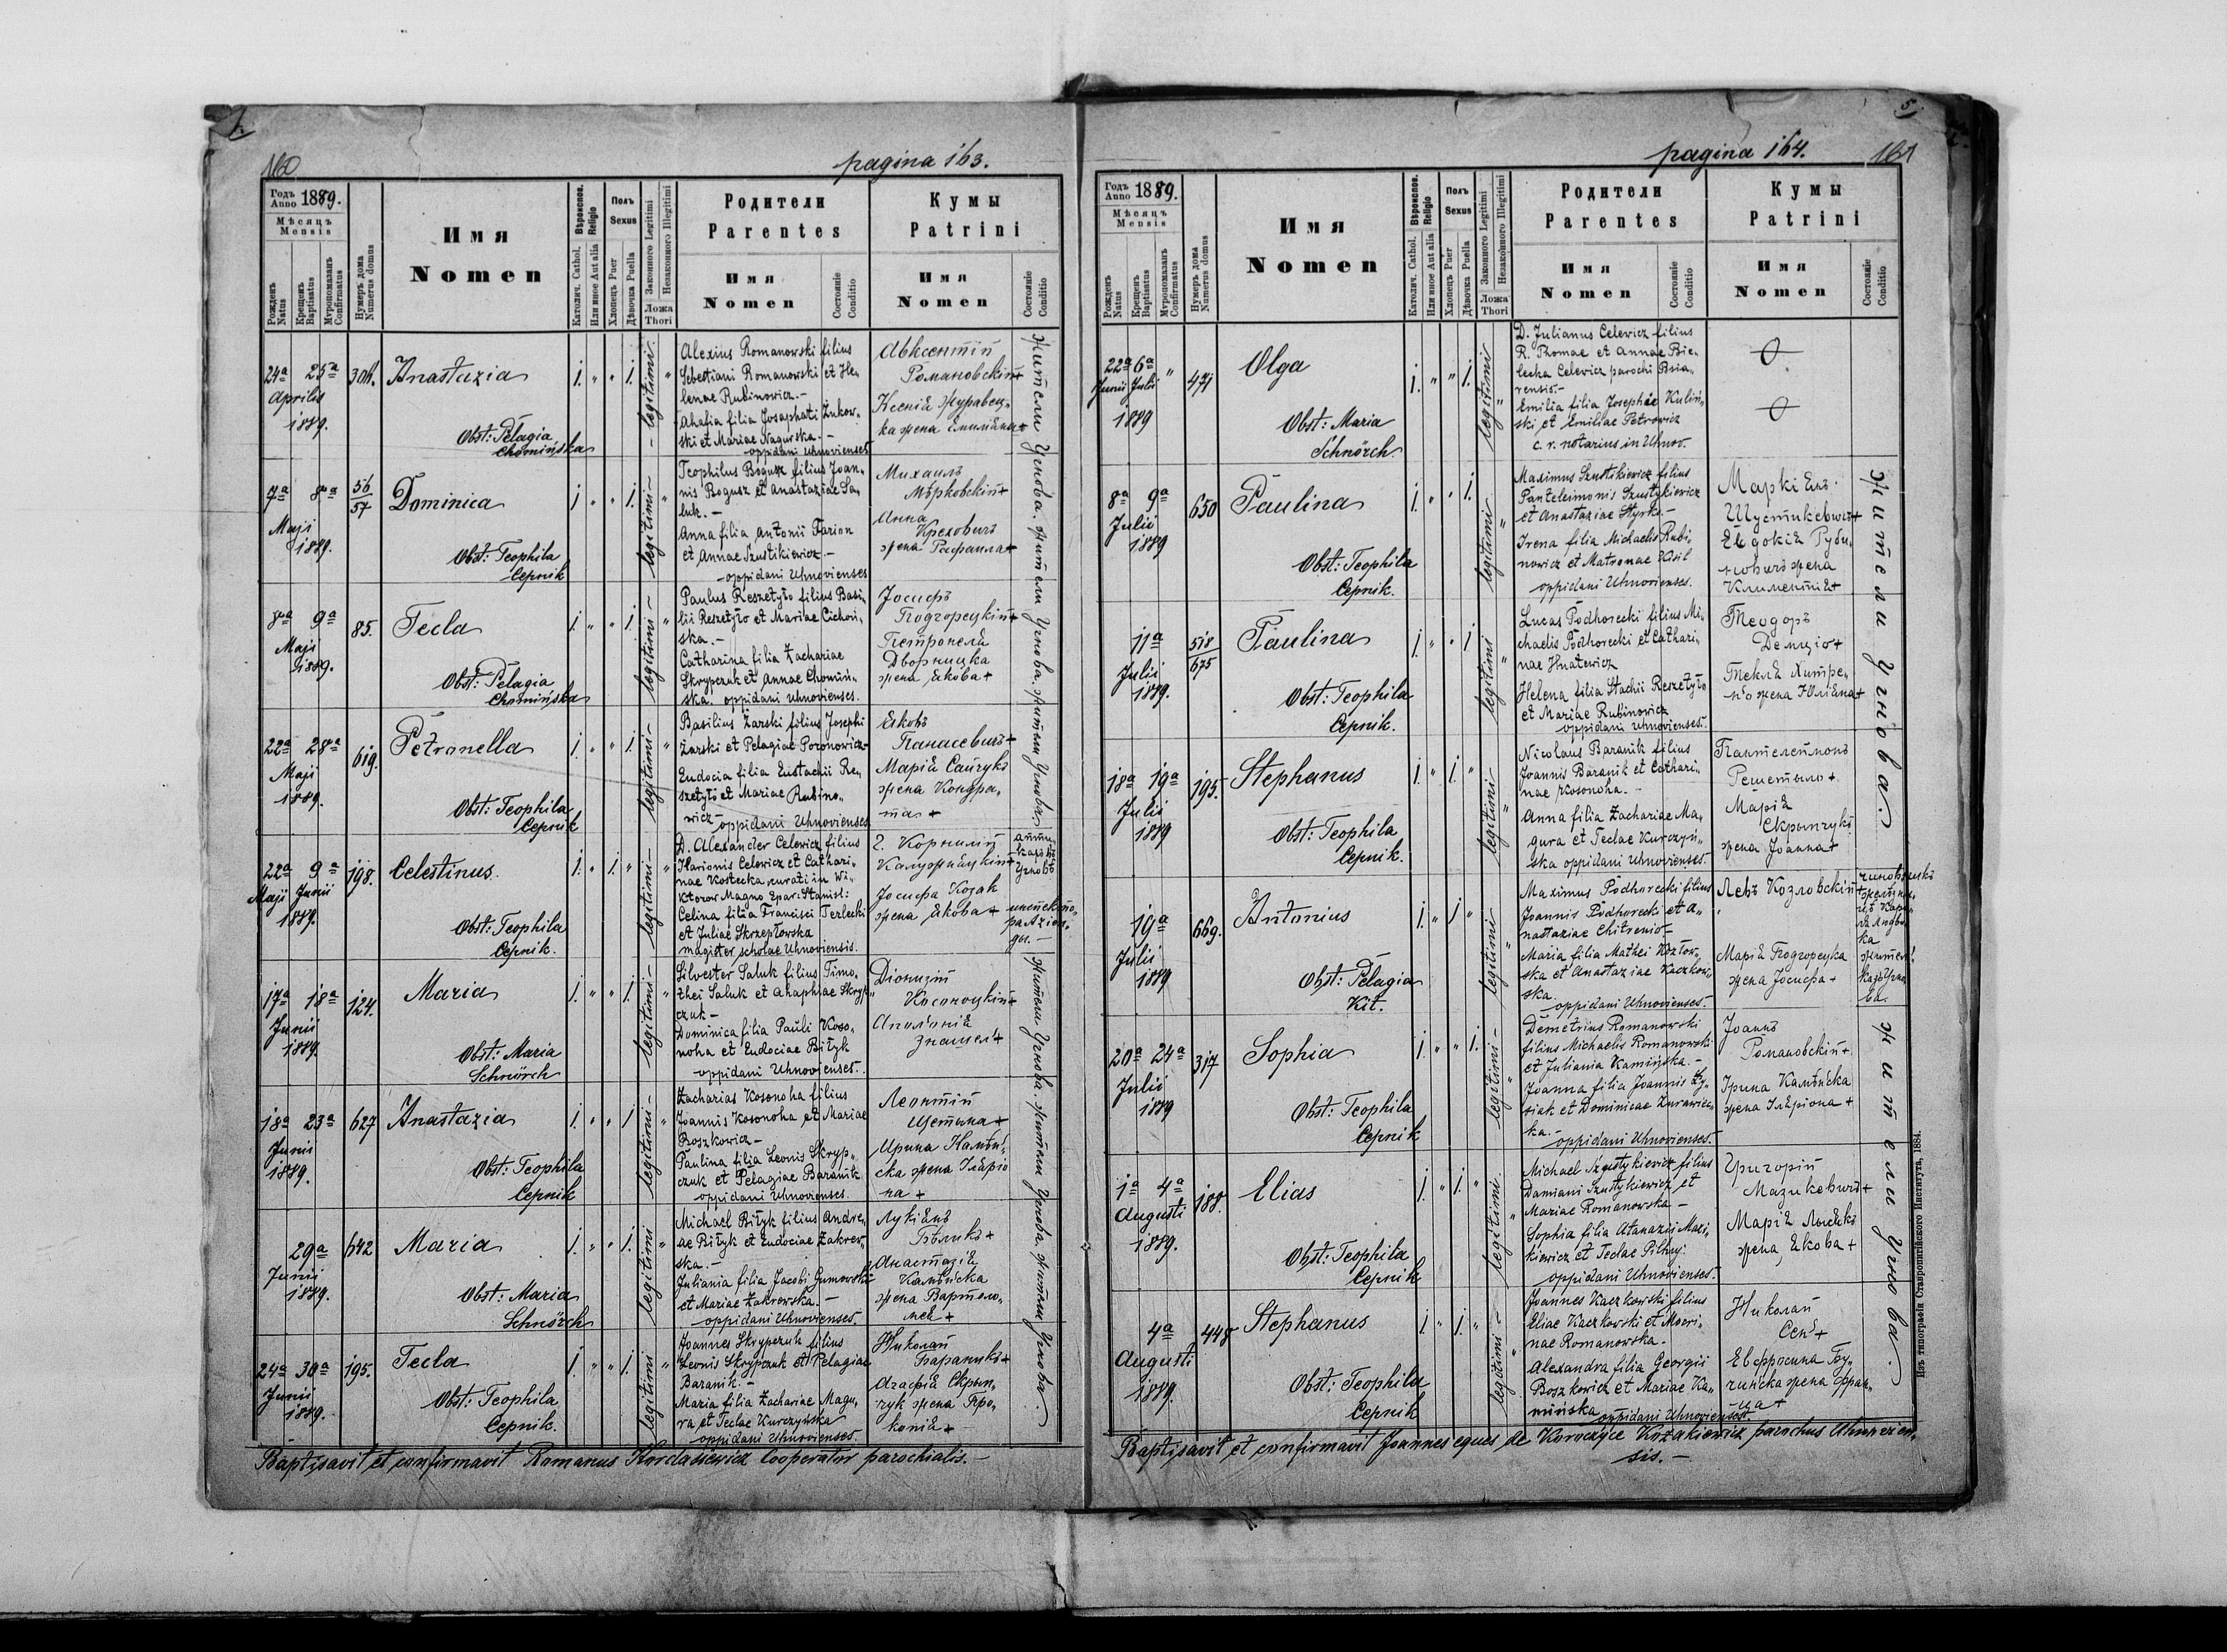 160
pagina 163.
Годъ Anno 1889.
Мѣсяцъ Mensis
Рожденъ Natus
Крещенъ Baptisatus
Мѵропомазанъ Confirmatus
Нумеръ дома Numerus domus
Имя
Nomen
Вѣроиспов. Religio
Католич. Cathol.
Или иное Aut alia
Полъ Sexus
Хлопецъ Puer
Дѣвочка Puella
Законного Legitimi
Незаконного Illegitimi
Ложа Thori
Родители
Parentes
Имя Nomen
Состояніе Conditio
Кумы
Patrini
Имя Nomen
Состояніе Conditio
24a 25a Aprilis 1889.
Anastazia
Obst: Pelagia
Chomińska
legitimi
Alexius Romanowski filius
Sebestiani Romanowski et He-
lenae Rubinowicz.-
Ahafia filia Josaphati Żukow-
ski et Mariae Nagurska.-
oppidani Uhnovienses
Авксентій
Романовскій+
Ксенія Журавец-
ка жена
7a 8a Maji 1889.
56
57
Dominica
Obst: Teophila
Cepnik
legitimi
Teophilus Bogusz filius Joan-
nis Bogusz et Anastaziae Sa-
luk.-
Anna filia Antonii Farion
et Annae Szustikiewicz.-
oppidani Uhnovienses
Михаилъ
Мѣрковскій+
Анна
Креховичъ
жена Рафаила+
8a 9a Maji 1889.
85.
Tecla
Obst: Pelagia
Chomińska
legitimi
Paulus Reszetyło filius Basi-
lii Reszetyło et Mariae Cichoń-
ska.-
Catharina filia Zachariae
Skrypczuk et Annae Chomiń-
ska. oppidani Uhnovienses.
Іосифъ
Подгорецкій+
Петронеля
Дворницка
жена Якова+
22a 28a Maji 1889.
619.
Petronella
Obst: Teophila
Cepnik
legitimi
Basilius Żarski filius Josephi
Żarski et Pelagiae Poronowicz-
Eudocia filia Eustachii Re-
szetyło et Mariae Rubino-
wicz- oppidani Uhnovienses
Яковъ
Панасевичъ+
Марія Сайчукъ
жена Кондра-
та+
22a Maji 9a Junii 1889.
198.
Celestinus
Obst: Teophila
Cepnik.
legitimi
D. Alexander Celewicz filius
Ilarionis Celewicz et Cathari-
nae Kostecka, curati in Wi-
ktorow Magno Epar: Stanisl:
Celina filia Francisci Terlecki
et Juliae Skrzepłowska
magister scholae Uhnoviensis.
Корнилій
Калужняцкій+
Іосифа Козак
жена Якова+
17a 18a Junii 1889.
124.
Maria
Obst: Maria
Schnörch
legitimi
Silvester Saluk filius Timo-
thei Saluk et Ahaphiae Skryp-
czuk-
Dominica filia Pauli Koso-
noha et Eudociae Biłyk
oppidani Uhnovienses.
Діонизій
Косоноцкій+
Аполонія
18a 23a Junii 1889.
627
Anastazia
Obst: Teophila
Cepnik
legitimi
Zacharias Kosonoha filius
Joannis Kosonoha et Mariae
Boszkowicz-
Paulina filia Leonis Skryp-
czuk et Pelagiae Baranik
oppidani Uhnovienses.
Леонтій
Щетина+
Ирина Камѣн-
ска жена Іларіо
на+
29a Junii 1889.
642
Maria
Obst: Maria
Schnörch
legitimi
Michael Biłyk filius Andre-
ae Biłyk et Eudociae Zakrew-
ska.-
Juliania filia Jacobi Gumowski
et Mariae Zakrewska.-
oppidani Uhnovienses.
Лукіянъ
Бѣликъ+
Анастазія
Камѣнска
жена Вартоло-
мея+
24a 30a Junii 1889.
195.
Tecla
Obst: Teophila
Cepnik.
legitimi
Joannes Skrypczuk filius
Leonis Skrypczuk et Pelagiae
Baranik.-
Maria filia Zachariae Magu-
ra et Teclae Kurczyńska
oppidani Uhnovienses.
Николай
Бараникъ+
Агафія Скрып-
чук жена Про-
копія+
жители Угнова.
Baptisavit et confirmavit Romanus Kordasiewicz Cooperator parochialis.-
5.
pagina 164.
161
Годъ Anno 1889.
Мѣсяцъ Mensis
Рожденъ Natus
Крещенъ Baptisatus
Мѵропомазанъ Confirmatus
Нумеръ дома Numerus domus
Имя
Nomen
Вѣроиспов. Religio
Католич. Cathol.
Или иное Aut alia
Полъ Sexus
Хлопецъ Puer
Дѣвочка Puella
Законного Legitimi
Незаконного Illegitimi
Ложа Thori
Родители
Parentes
Имя Nomen
Состояніе Conditio
Кумы
Patrini
Имя Nomen
Состояніе Conditio
22a Junii 6a Julii 1889
471
Olga
Obst: Maria
Schnörch
legitimi
D. Julianus Celewicz filius
R. Thomae et Annae Bie-
lecka Celewicz parochi Bsia-
rensis.-
Emilia filia Josephi Kuliń-
ski et Emiliae Petrowicz
c. r. notarius in Uhnow.
8a 9a Julii 1889
650
Paulina
Obst: Teophila
Cepnik.
legitimi
Maximus Szustikiewicz filius
Panteleimonis Szustykiewicz
et Anastaziae Styrka-
Irena filia Michaelis Rubi-
nowicz et Matronae Kisil
oppidani Uhnovienses.
Маркіянъ
Шустикевичъ+
Евдокія Руби-
новичъ жена
Климентія+
11a Julii 1889.
518
675
Paulina
Obst: Teophila
Cepnik.
legitimi
Lucas Podhorecki filius Mi-
chaelis Podhorecki et Cathari-
nae Hnatewicz
Helena filia Stachii Reszetyło
et Mariae Rubinowicz
oppidani Uhnovienses.
Теодоръ
Демціо+
Текля Хитре-
ньо жена Юліяна+
18a 19a Julii 1889
195.
Stephanus
Obst: Teophila
Cepnik.
legitimi
Nicolaus Baranik filius
Joannis Baranik et Cathari-
nae Kosonoha.-
Anna filia Zachariae Ma-
gura et Teclae Kurczyń-
ska oppidani Uhnovienses.
Пантелеймонъ
Решетыло+
Марія
Скрыпчукъ
жена Іоанна+
19a Julii 1889
669.
Antonius
Obst: Pelagia
Kit.
legitimi
Maximus Podhorecki filius
Joannis Podhorecki et A-
nastaziae Chitrenio-
Maria filia Mathei Kozłow-
ska et Anastaziae Kaczkow-
ska
oppidani Uhnovienses.
Левъ Козловскій+
Марія Подгорецка
жена Іосифа+
20a 24a Julii 1889
317
Sophia
Obst: Teophila
Cepnik
legitimi
Demetrius Romanowski
filius Michaelis Romanowski
et Juliania Kamińska.-
Joanna filia Joannis Zy-
siak et Dominicae Żurawiec-
ka.-
oppidani Uhnovienses.
Іоаннъ
Романовскій+
Ірина Камѣнска
жена Іляріона+
1a 4a Augusti 1889.
188.
Elias
Obst: Teophila
Cepnik
legitimi
Michael Szustykiewicz filius
Damiani Szustykiewicz et
Mariae Romanowska-
Sophia filia Atanazii Mazi-
kiewicz et Teclae Pilhuj.
oppidani Uhnovienses.
Григорій
Мазикевичъ+
Марія
жена Якова+
4a Augusti 1889.
448
Stephanus
Obst: Teophila
Cepnik
legitimi
Joannes Kaczkowski filius
Eliae Kaczkowski et Macri-
nae Romanowska.
Alexandra filia Georgii
Boszkowicz et Mariae Ka-
mińska
oppidani Uhnovienses.
Николай
Сень+
Евфросина Бу-
чинска жена Фран-
ца+
Жители Угнова.
Baptisavit et confirmavit Joannes eques de Koroczyce Kozakiewicz parochus Uhnovien-
sis.-
Изъ типографіи Ставропигійского Института, 1884.